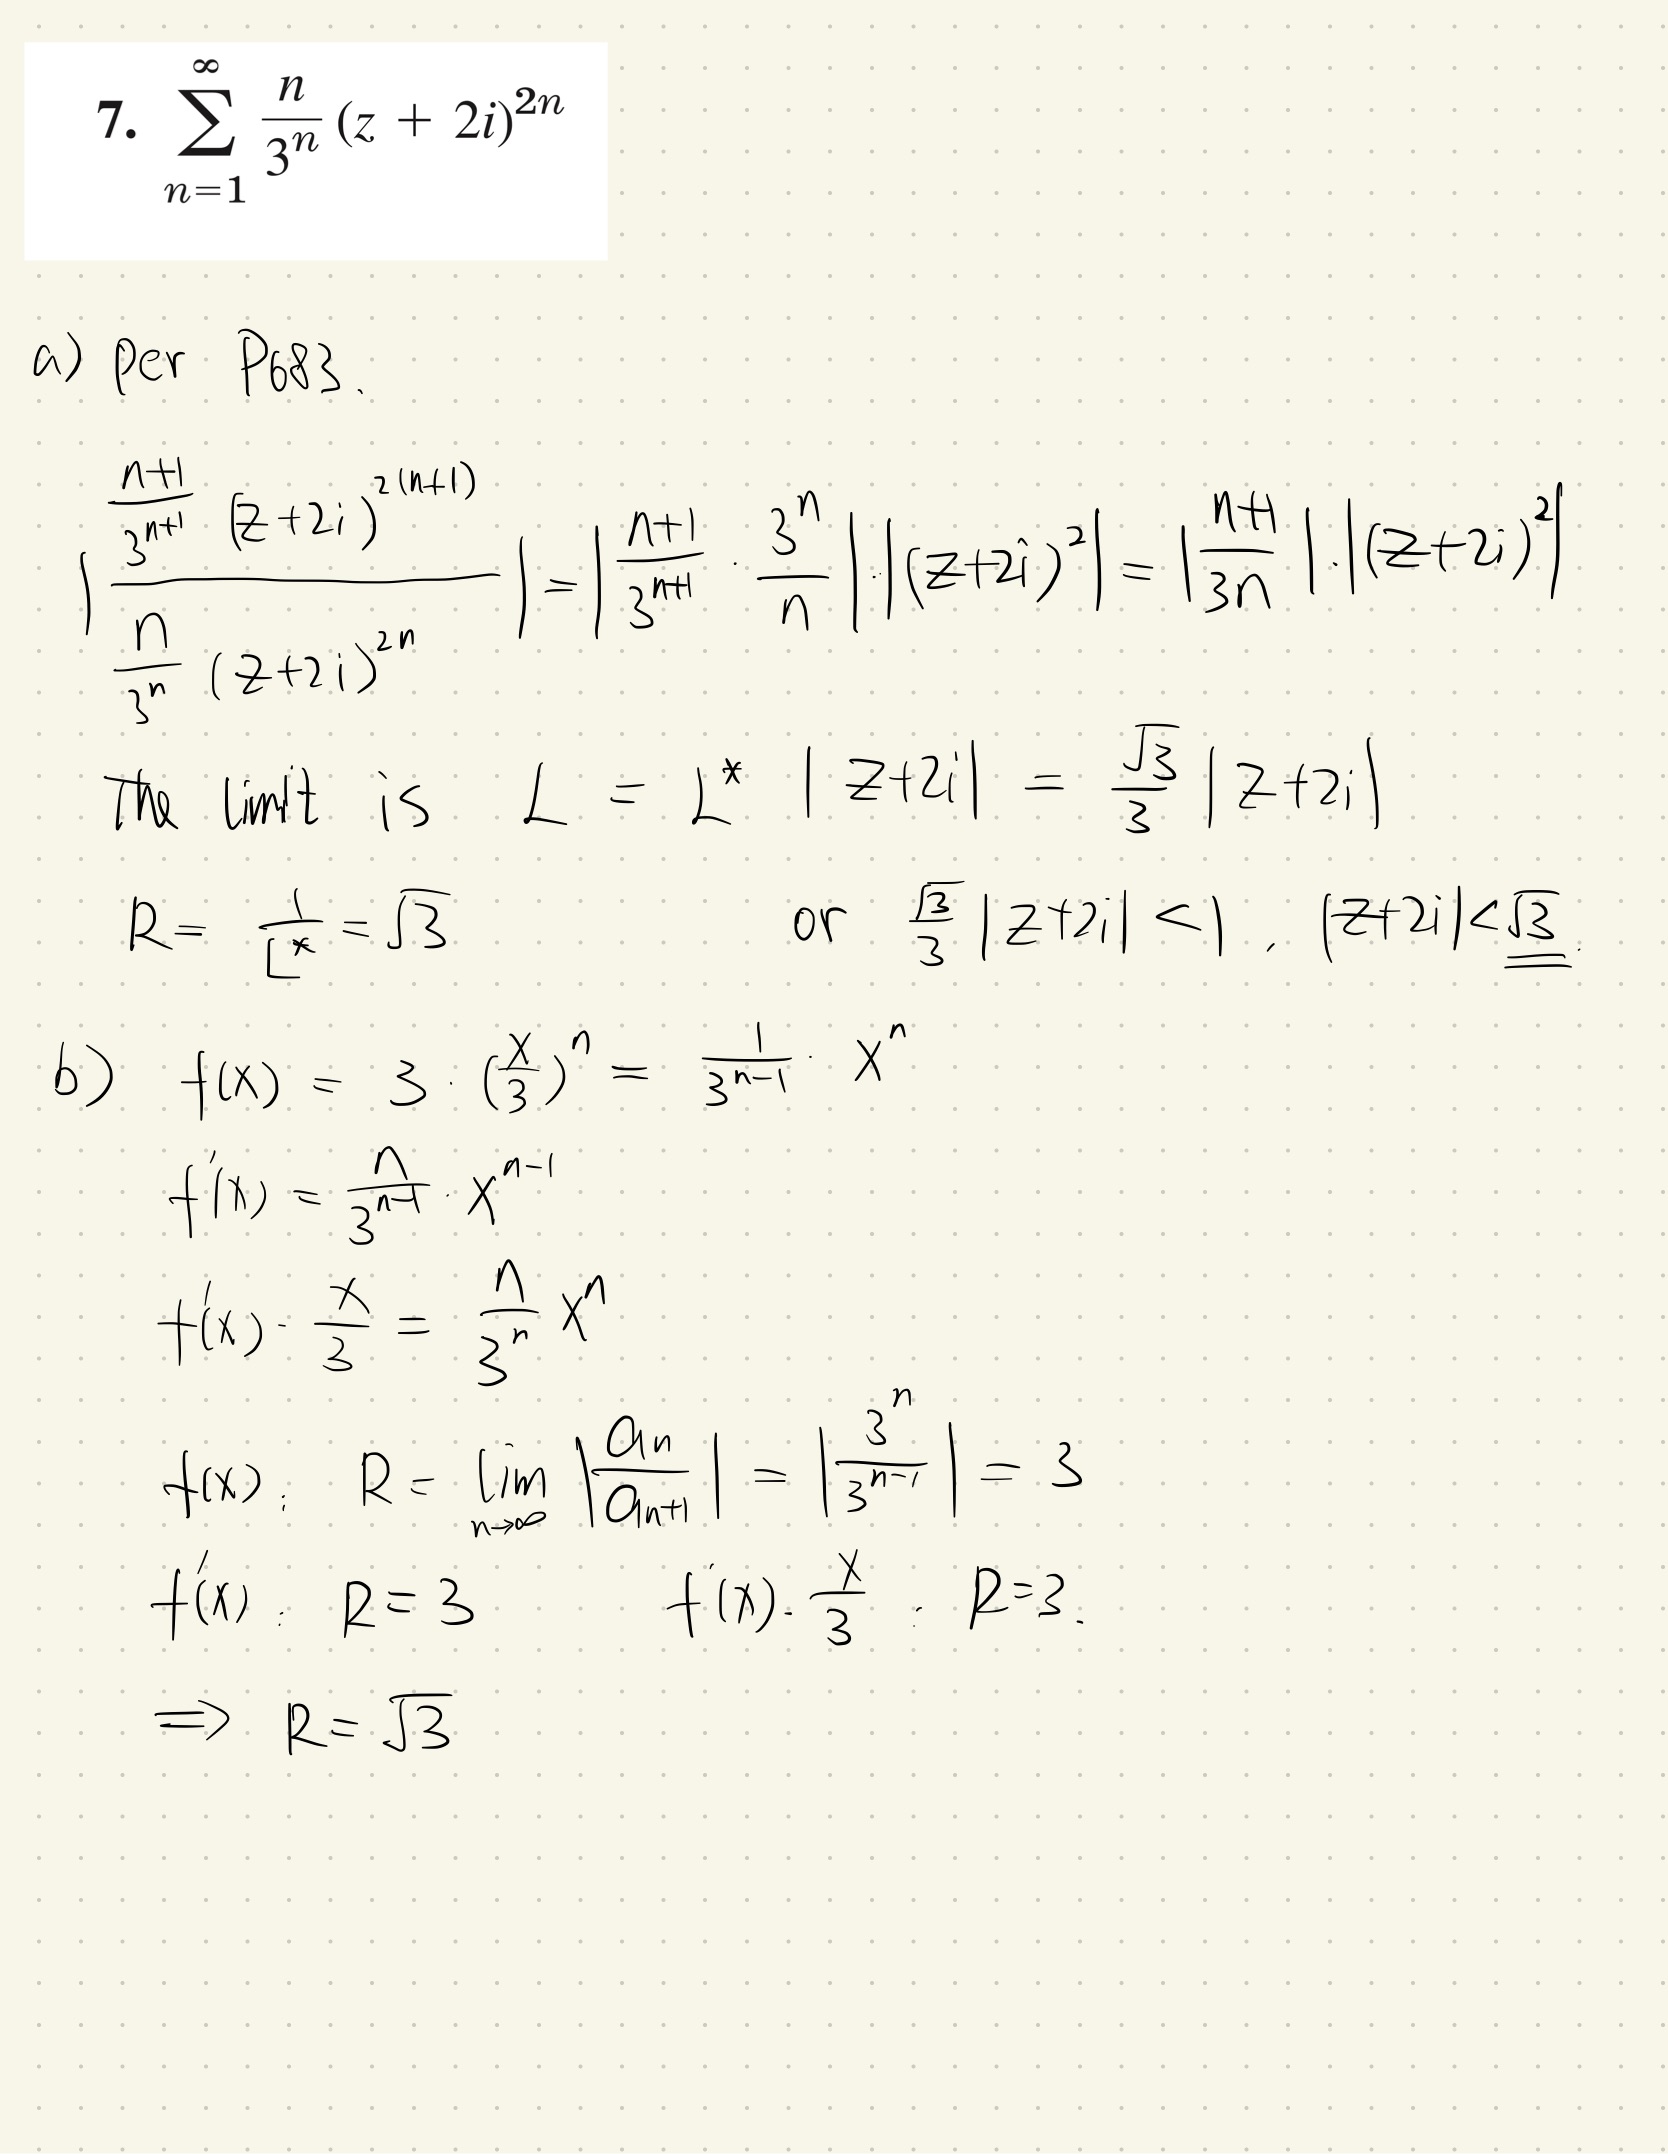 7. ∑_{n=1}^{∞} n/3^n (z + 2i)^{2n}
a) per P683.
| (n+1)/3^{n+1} (z+2i)^{2(n+1)} / n/3^n (z+2i)^{2n} | = | (n+1)/3^{n+1} · 3^n/n | · |(z+2i)^2| = | (n+1)/3n | · |(z+2i)^2|
The limit is L = L* |z+2i| = √3/3 |z+2i|
R = 1/L* = √3 or √3/3 |z+2i| < 1, |z+2i| < √3.
b) f(x) = 3 · (x/3)^n = 1/3^{n-1} · x^n
f'(x) = n/3^{n-1} · x^{n-1}
f'(x) · x/3 = n/3^n x^n
f(x): R = lim_{n→∞} |a_n/a_{n+1}| = |3^n/3^{n-1}| = 3
f'(x): R = 3 f'(x) · x/3 : R = 3.
⇒ R = √3